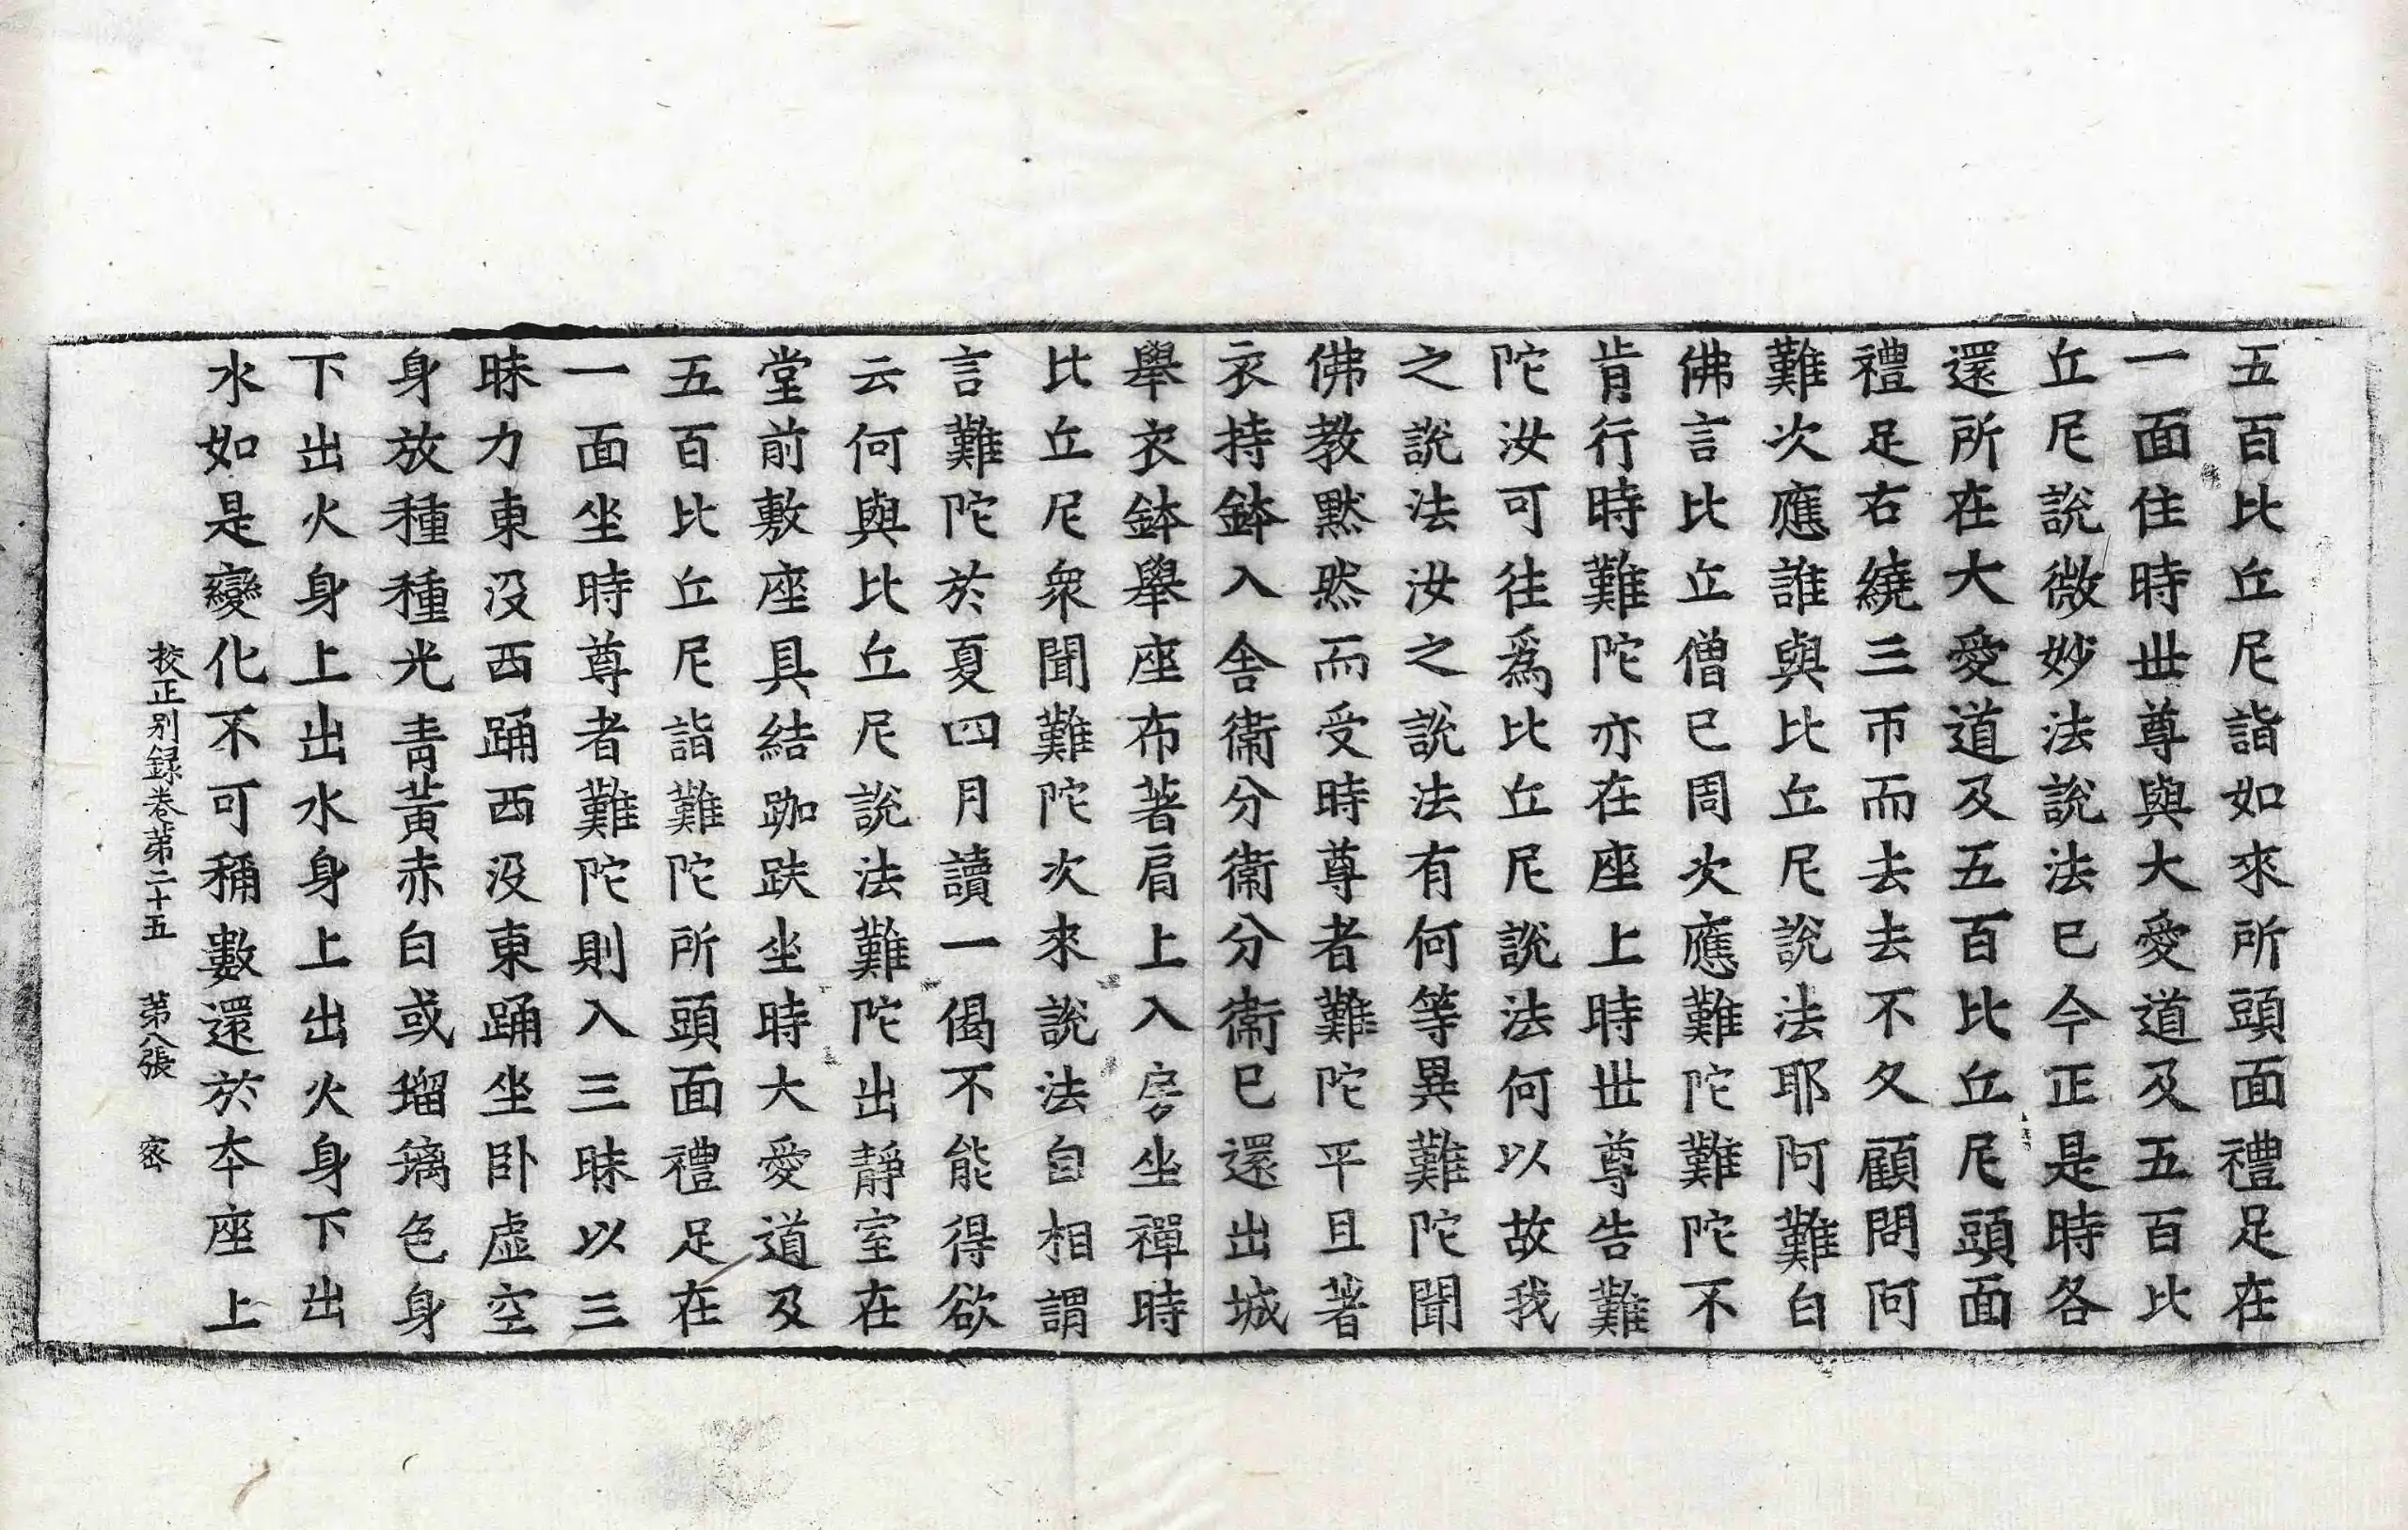 五百比丘尼詣如來所頭面禮足在
一面住時世尊與大愛道及五百比
丘尼說微妙法說法已今正是時各
還所在大愛道及五百比丘尼頭面
禮足右繞三帀而去去不久顧問阿
難次應誰與比丘尼說法耶阿難白
佛言比丘僧已周次應難陀難陀不
肯行時難陀亦在座上時世尊告難
陀汝可往爲比丘尼說法何以故我
之說法汝之說法有何等異難陀聞
佛教默然而受時尊者難陀平旦著
衣持鉢入舍衛分衛分衛已還出城
舉衣鉢舉座布著肩上入房坐禪時
比丘尼衆聞難陀次來說法自相謂
言難陀於夏四月讀一偈不能得欲
云何與比丘尼說法難陀出靜室在
堂前敷座具結跏趺坐時大愛道及
五百比丘尼詣難陀所頭面禮足在
一面坐時尊者難陀則入三昧以三
昧力東没西踊西没東踊坐臥虛空
身放種種光青黃赤白或瑠璃色身
下出火身上出水身上出火身下出
水如是變化不可稱數還於本座上
挍正别録卷第二十五　第八張　密